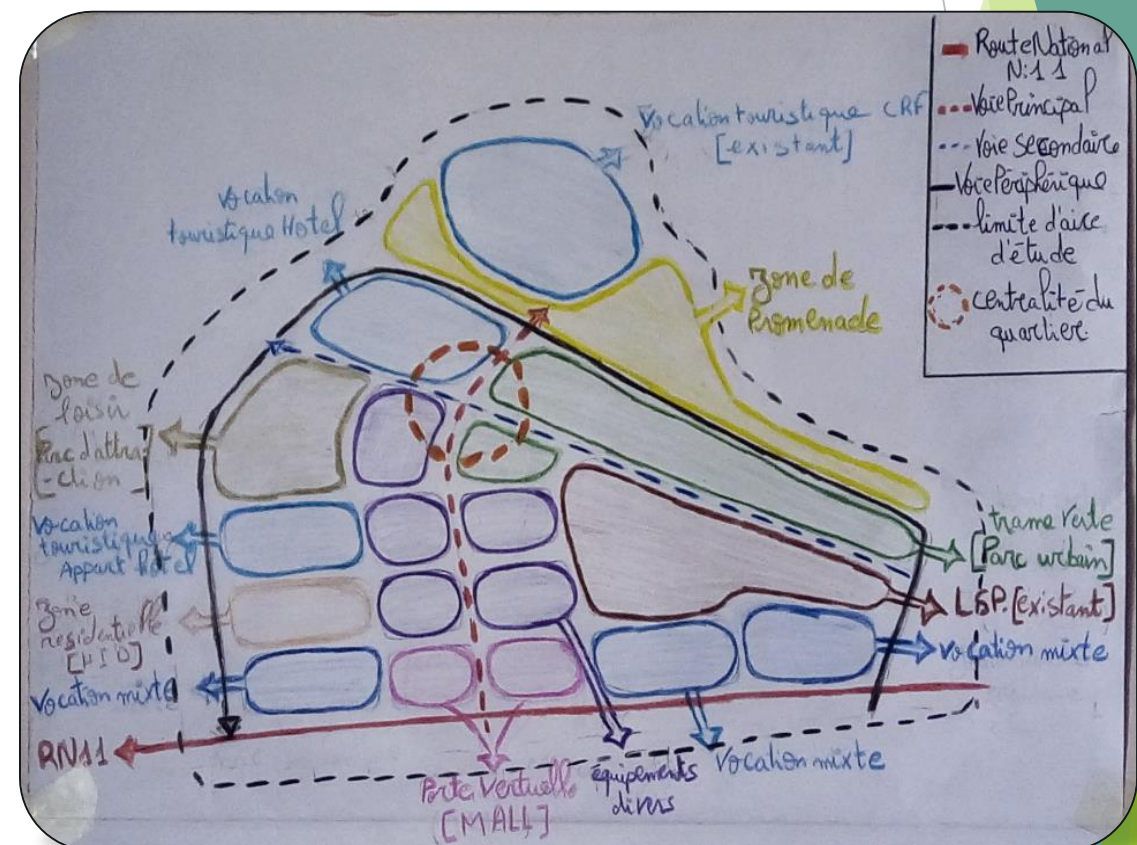 Route National
N:11
Voie Principal
Voie secondaire
Voie Périphérique
limite d'aire
d'étude
centralité du
quartier.
Vocation touristique CRF
[existant]
Vocation
touristique Hotel
Zone de
Promenade
Zone de
loisir
[Parc d'attra
-ction]
Vocation
touristique
Appart hotel
Zone
residentielle
[HID]
Vocation mixte
RN11
trame verte
[Parc urbain]
LSP.[existant]
Vocation mixte
Vocation mixte
équipements
divers
Porte Vertuelle
[MALL]